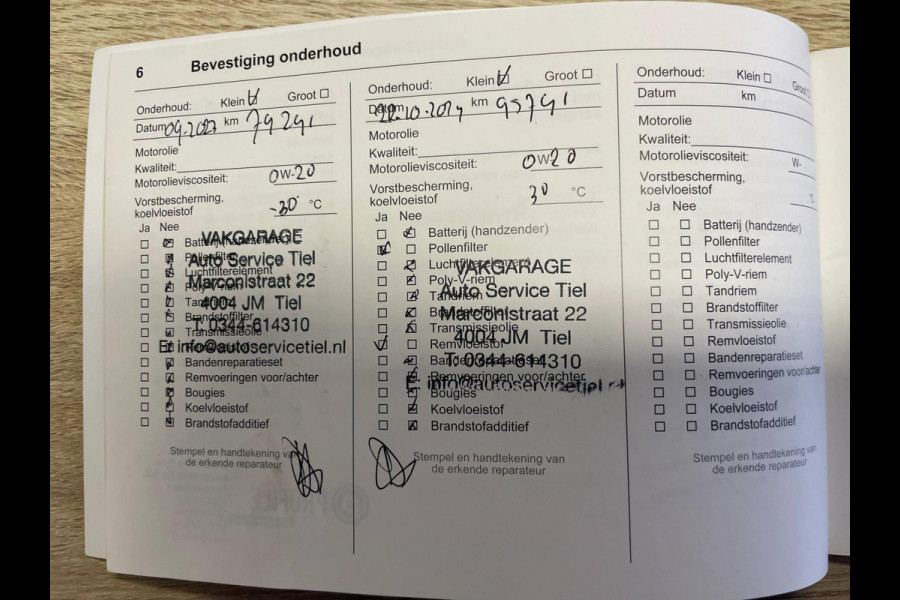 6 Bevestiging onderhoud
Onderhoud: Klein Groot
Datum 09-2023 km 79291
Motorolie
Kwaliteit:
Motorolieviscositeit: 0W-20
Vorstbescherming,
koelvloeistof -30 °C
Ja Nee
Batterij (handzender)
Pollenfilter
Luchtfilterelement
Poly-V-riem
Tandriem
Brandstoffilter
Transmissieolie
Remvloeistof
Bandenreparatieset
Remvoeringen voor/achter
Bougies
Koelvloeistof
Brandstofadditief
VAKGARAGE
Auto Service Tiel
Marconistraat 22
4004 JM Tiel
T: 0344-614310
E: info@autoservicetiel.nl
Stempel en handtekening van
de erkende reparateur
Onderhoud: Klein Groot
Datum 22-10-2024 km 95791
Motorolie
Kwaliteit:
Motorolieviscositeit: 0W20
Vorstbescherming,
koelvloeistof 30 °C
Ja Nee
Batterij (handzender)
Pollenfilter
Luchtfilterelement
Poly-V-riem
Tandriem
Brandstoffilter
Transmissieolie
Remvloeistof
Bandenreparatieset
Remvoeringen voor/achter
Bougies
Koelvloeistof
Brandstofadditief
VAKGARAGE
Auto Service Tiel
Marconistraat 22
4004 JM Tiel
T: 0344-614310
E: info@autoservicetiel.nl
Stempel en handtekening van
de erkende reparateur
Onderhoud: Klein Groot
Datum km
Motorolie
Kwaliteit:
Motorolieviscositeit: W-
Vorstbescherming,
koelvloeistof °C
Ja Nee
Batterij (handzender)
Pollenfilter
Luchtfilterelement
Poly-V-riem
Tandriem
Brandstoffilter
Transmissieolie
Remvloeistof
Bandenreparatieset
Remvoeringen voor/achter
Bougies
Koelvloeistof
Brandstofadditief
Stempel en handtekening van
de erkende reparateur